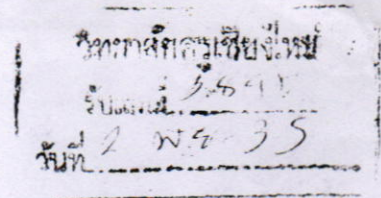 วิทยาลัยครูเชียงใหม่
รับเลขที่
วันที่ 2 พย 35